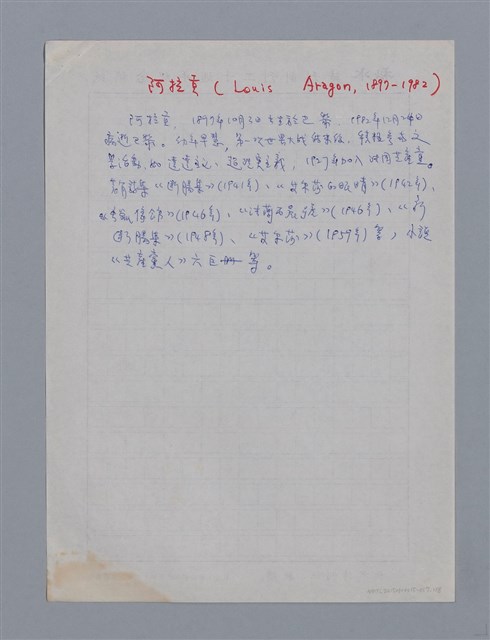 阿拉貢 (Louis Aragon, 1897-1982)
阿拉貢, 1897年10月3日生於巴黎, 1982年12月24日
病逝巴黎。 第一次世界大戰結束後, 積極參與文
藝活動, 如達達主義、超現實主義, 1927年加入法國共產黨。
著有詩集《斷腸集》(1941年)、《艾爾莎的眼睛》(1942年)、
(1946年)、 (1946年)、《新
斷腸集》(1948年)、《艾爾莎》(1959年)等, 小說
《共產黨人》六巨 等。